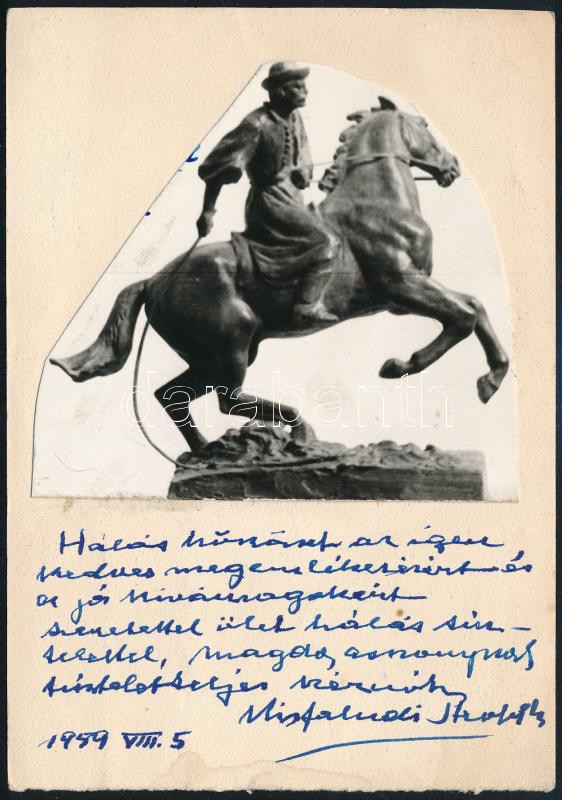 darabanth.com
Hálás köszönet az igen
kedves megemlékezésért és
a jó kívánságokért
szeretettel ölel hálás tisz-
telettel, Magda asszonynak
tiszteletteljes
Kisfaludi Strobl Zs
1959 VIII. 5